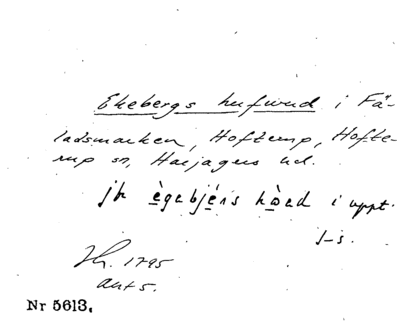 Ekebergs hufwud i Fä-
ladsmarken, Hofterup, Hofte-
rup sn, Harjagers hd.
jfr ègebjérs hòəd i uppt.
J-s.
1795
ant 5.
Nr 5613.